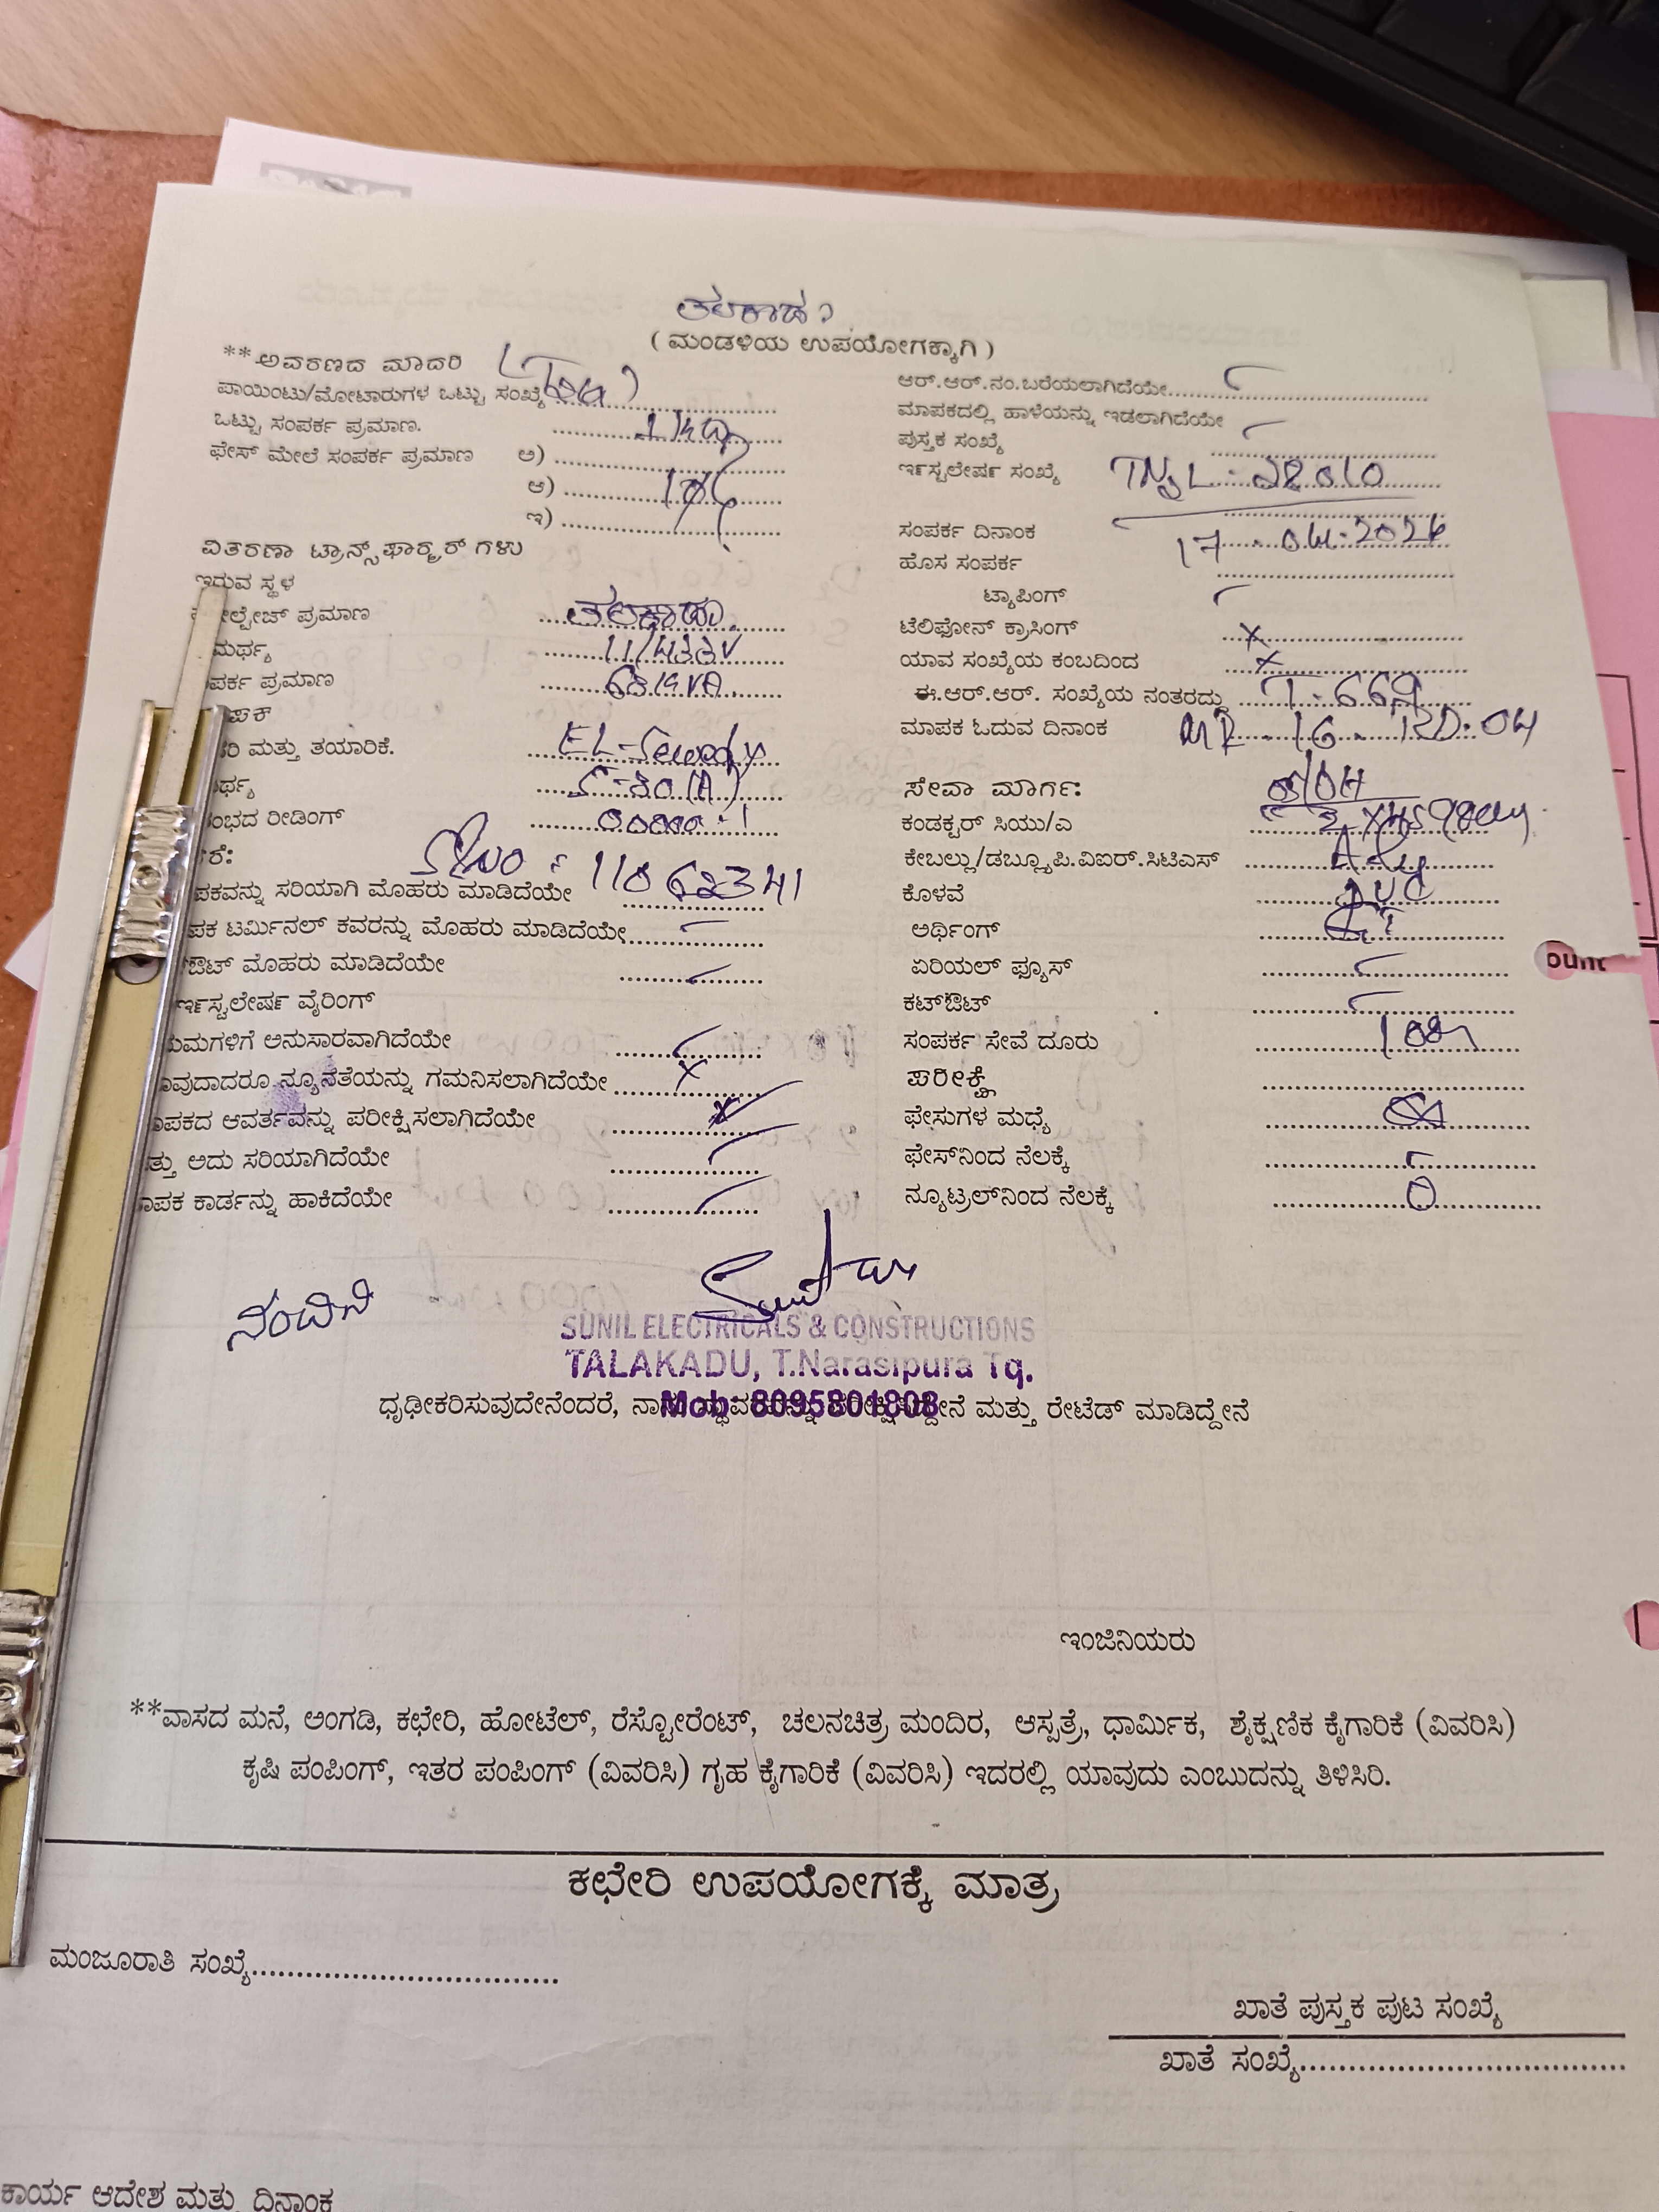 ತಲಕಾಡು
( ಮಂಡಳಿಯ ಉಪಯೋಗಕ್ಕಾಗಿ )
**ಆವರಣದ ಮಾದರಿ
ಪಾಯಿಂಟು/ಮೋಟಾರುಗಳ ಒಟ್ಟು ಸಂಖ್ಯೆ
ಒಟ್ಟು ಸಂಪರ್ಕ ಪ್ರಮಾಣ.
ಫೇಸ್ ಮೇಲೆ ಸಂಪರ್ಕ ಪ್ರಮಾಣ ಅ)
ಆ)
ಇ)
ವಿತರಣಾ ಟ್ರಾನ್ಸ್‌ಫಾರ್ಮರ್ ಗಳು
ಇರುವ ಸ್ಥಳ
ಲ್ಟೇಜ್ ಪ್ರಮಾಣ ತಲಕಾಡು
ಮರ್ಥ್ಯ 11/433V
ಪರ್ಕ ಪ್ರಮಾಣ
ಪಕ
ರಿ ಮತ್ತು ತಯಾರಿಕೆ. EL-
ರ್ಥ್ಯ 5-30(A)
ಂಭದ ರೀಡಿಂಗ್
ರೆ: Slno : 11062341
ಪಕವನ್ನು ಸರಿಯಾಗಿ ಮೊಹರು ಮಾಡಿದೆಯೇ
ಪಕ ಟರ್ಮಿನಲ್ ಕವರನ್ನು ಮೊಹರು ಮಾಡಿದೆಯೇ
ಔಟ್ ಮೊಹರು ಮಾಡಿದೆಯೇ
ಇನ್‌ಸ್ಟಲೇಷನ್ ವೈರಿಂಗ್
ಯಮಗಳಿಗೆ ಅನುಸಾರವಾಗಿದೆಯೇ
ಾವುದಾದರೂ ನ್ಯೂನತೆಯನ್ನು ಗಮನಿಸಲಾಗಿದೆಯೇ X
ಾಪಕದ ಆವರ್ತವನ್ನು ಪರೀಕ್ಷಿಸಲಾಗಿದೆಯೇ
ತ್ತು ಅದು ಸರಿಯಾಗಿದೆಯೇ
ಾಪಕ ಕಾರ್ಡನ್ನು ಹಾಕಿದೆಯೇ
ಆರ್.ಆರ್.ನಂ.ಬರೆಯಲಾಗಿದೆಯೇ
ಮಾಪಕದಲ್ಲಿ ಹಾಳೆಯನ್ನು ಇಡಲಾಗಿದೆಯೇ
ಪುಸ್ತಕ ಸಂಖ್ಯೆ
ಇನ್‌ಸ್ಟಲೇಷನ್ ಸಂಖ್ಯೆ 28010
ಸಂಪರ್ಕ ದಿನಾಂಕ 17-04-2026
ಹೊಸ ಸಂಪರ್ಕ
ಟ್ಯಾಪಿಂಗ್
ಟೆಲಿಫೋನ್ ಕ್ರಾಸಿಂಗ್ X
ಯಾವ ಸಂಖ್ಯೆಯ ಕಂಬದಿಂದ X
ಈ.ಆರ್.ಆರ್. ಸಂಖ್ಯೆಯ ನಂತರದ್ದು T-669
ಮಾಪಕ ಓದುವ ದಿನಾಂಕ MR-16-RD:04
ಸೇವಾ ಮಾರ್ಗ:
ಕಂಡಕ್ಟರ್ ಸಿಯು/ಎ
ಕೇಬಲ್ಲು/ಡಬ್ಲ್ಯೂ.ಪಿ.ವಿಐಆರ್.ಸಿಟಿಎಸ್
ಕೊಳವೆ PVC
ಅರ್ಥಿಂಗ್
ಏರಿಯಲ್ ಫ್ಯೂಸ್
ಕಟ್‌ಔಟ್
ಸಂಪರ್ಕ ಸೇವೆ ದೂರು
ಪರೀಕ್ಷೆ
ಫೇಸುಗಳ ಮಧ್ಯೆ
ಫೇಸ್‌ನಿಂದ ನೆಲಕ್ಕೆ
ನ್ಯೂಟ್ರಲ್‌ನಿಂದ ನೆಲಕ್ಕೆ 0
ನಂದಿನಿ
SUNIL ELECTRICALS & CONSTRUCTIONS
TALAKADU, T.Narasipura Tq.
Mob: 8095801808
ಧೃಢೀಕರಿಸುವುದೇನೆಂದರೆ, ಮತ್ತು ರೇಟೆಡ್ ಮಾಡಿದ್ದೇನೆ
ಇಂಜಿನಿಯರು
**ವಾಸದ ಮನೆ, ಅಂಗಡಿ, ಕಛೇರಿ, ಹೋಟೆಲ್, ರೆಸ್ಟೋರೆಂಟ್, ಚಲನಚಿತ್ರ ಮಂದಿರ, ಆಸ್ಪತ್ರೆ, ಧಾರ್ಮಿಕ, ಶೈಕ್ಷಣಿಕ ಕೈಗಾರಿಕೆ (ವಿವರಿಸಿ)
ಕೃಷಿ ಪಂಪಿಂಗ್, ಇತರ ಪಂಪಿಂಗ್ (ವಿವರಿಸಿ) ಗೃಹ ಕೈಗಾರಿಕೆ (ವಿವರಿಸಿ) ಇದರಲ್ಲಿ ಯಾವುದು ಎಂಬುದನ್ನು ತಿಳಿಸಿರಿ.
ಕಛೇರಿ ಉಪಯೋಗಕ್ಕೆ ಮಾತ್ರ
ಮಂಜೂರಾತಿ ಸಂಖ್ಯೆ
ಖಾತೆ ಪುಸ್ತಕ ಪುಟ ಸಂಖ್ಯೆ
ಖಾತೆ ಸಂಖ್ಯೆ
ಕಾರ್ಯ ಆದೇಶ ಮತ್ತು ದಿನಾಂಕ
ount